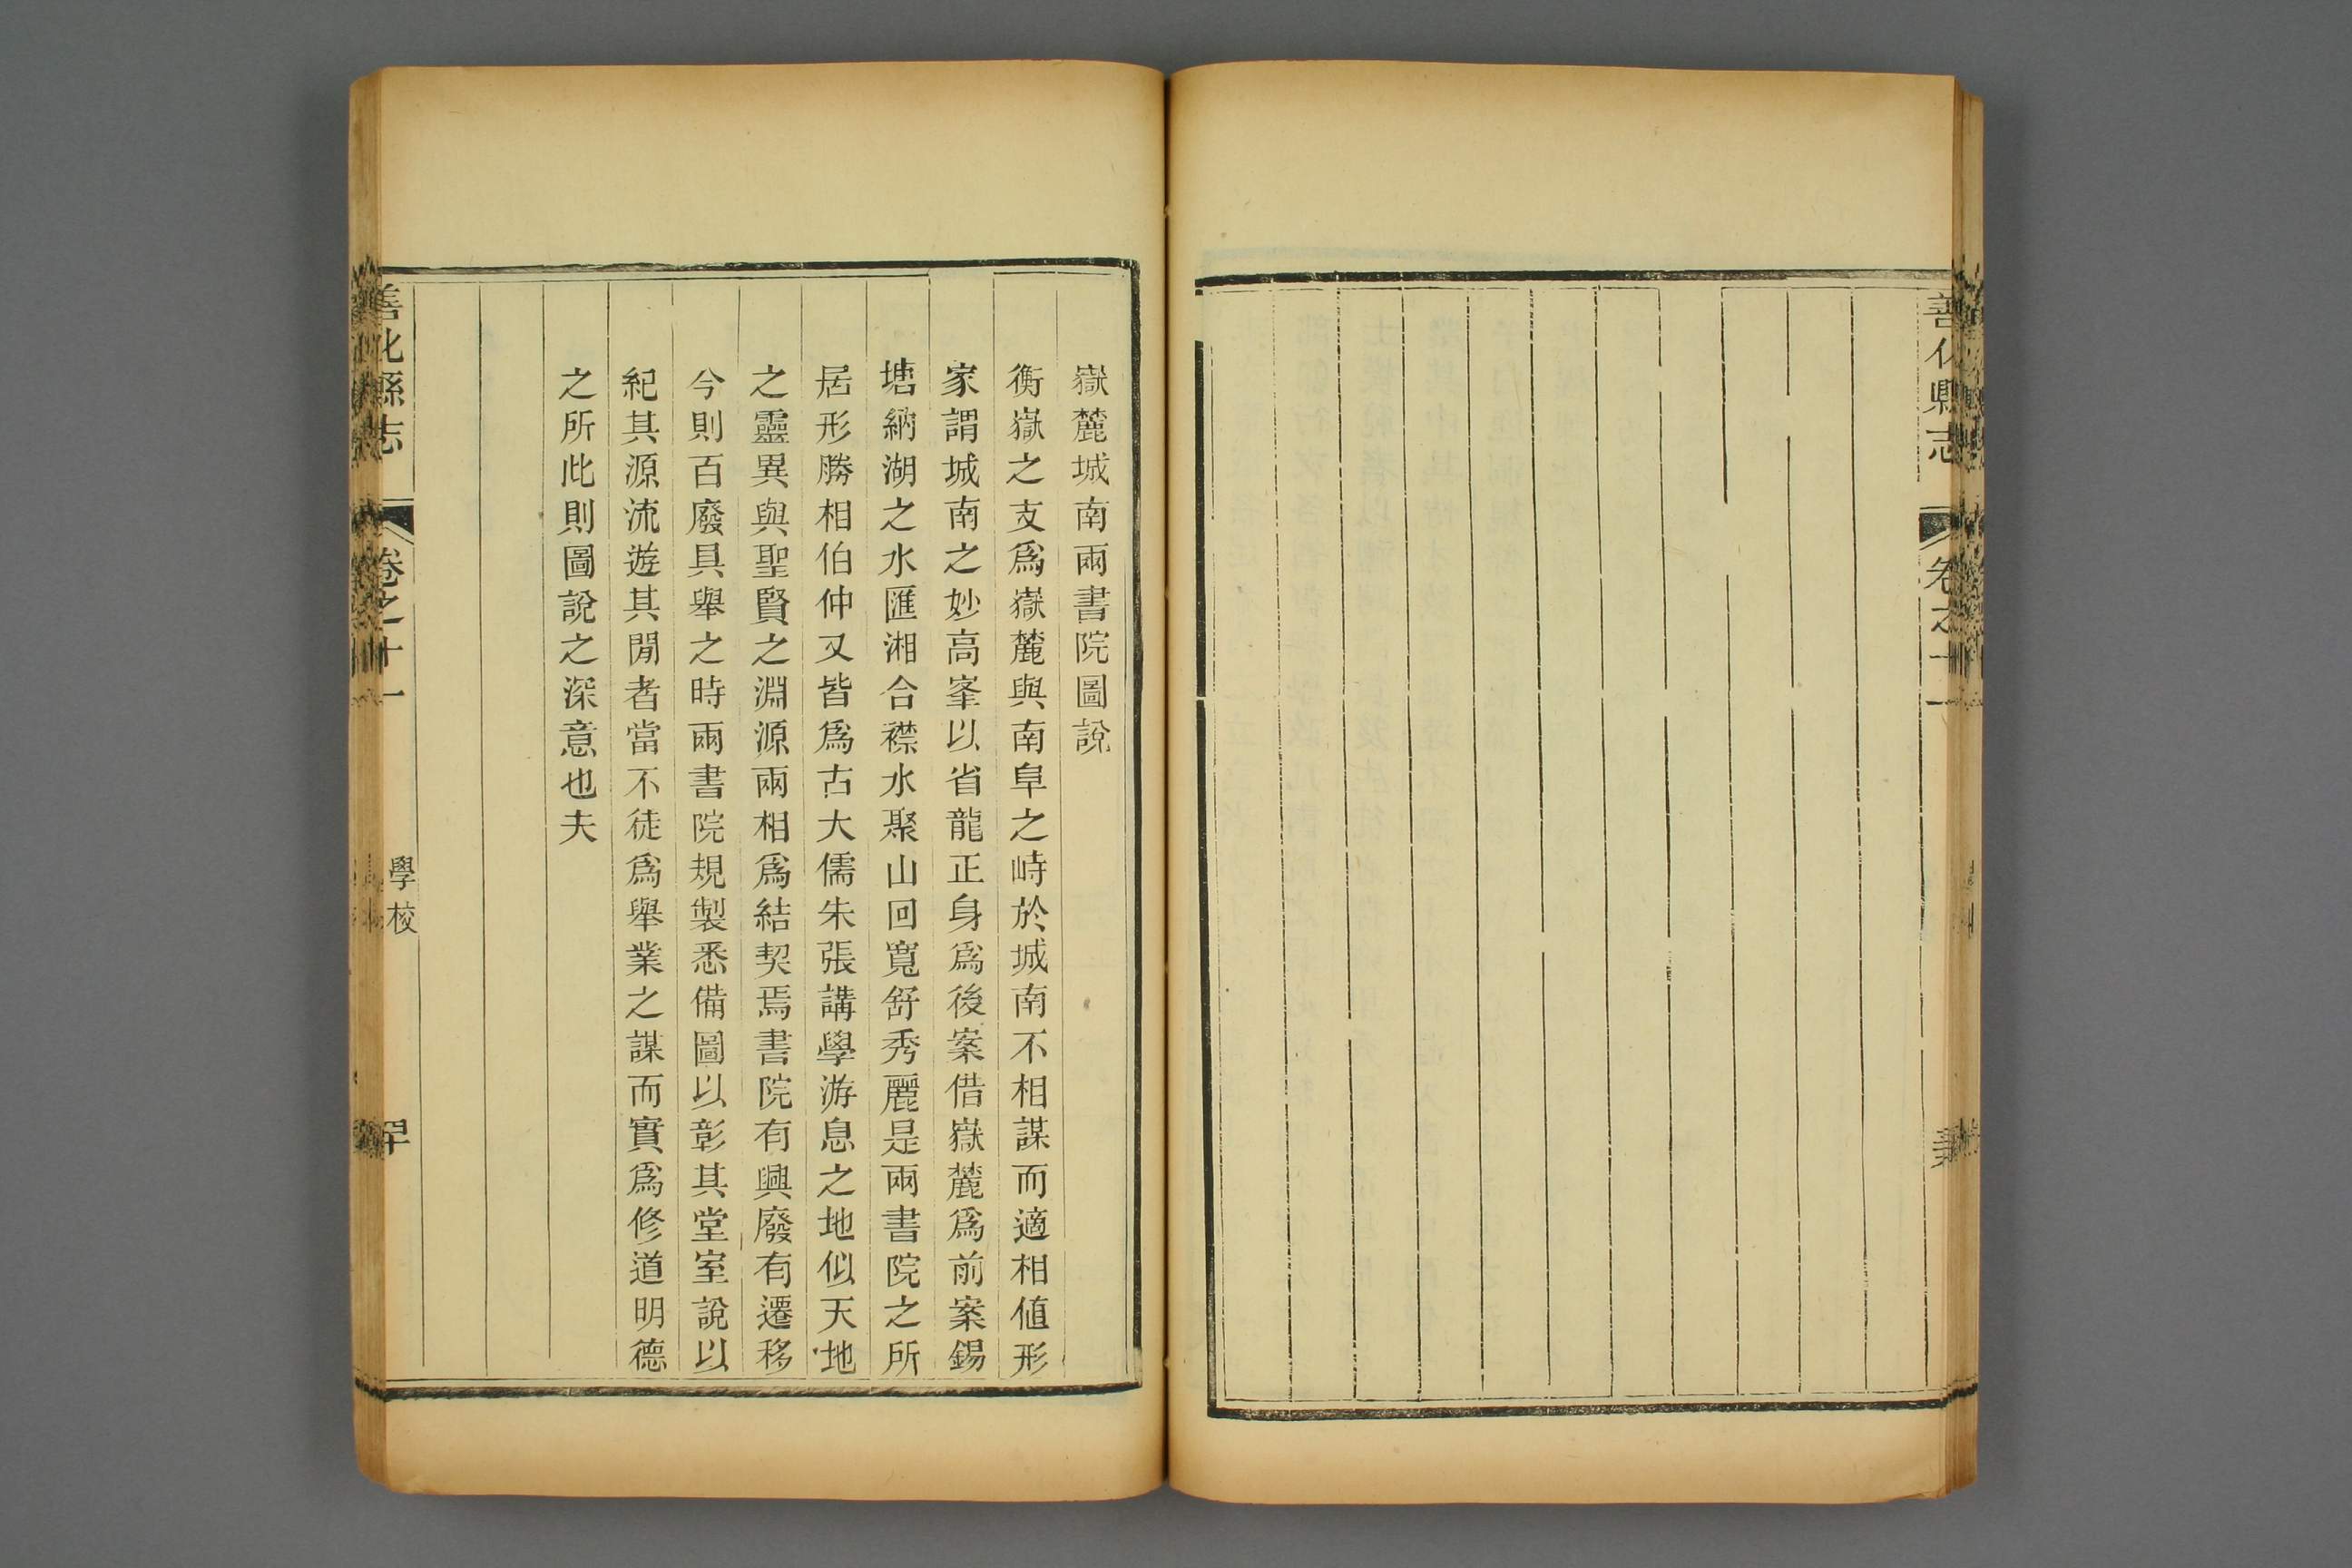 善化縣志
卷之十一
嶽麓城南兩書院圖說
衡嶽之支爲嶽麓與南阜之峙於城南不相謀而適相値形
家謂城南之妙高峯以省龍正身爲後案借嶽麓爲前案錫
塘納湖之水匯湘合襟水聚山回寬舒秀麗是兩書院之所
居形勝相伯仲又皆爲古大儒朱張講學游息之地似天地
之靈異與聖賢之淵源兩相爲結契焉書院有興廢有遷移
今則百廢具舉之時兩書院規製悉備圖以彰其堂室說以
紀其源流遊其閒者當不徒爲舉業之謀而實爲修道明德
之所此則圖說之深意也夫
善化縣志
卷之十一
學校